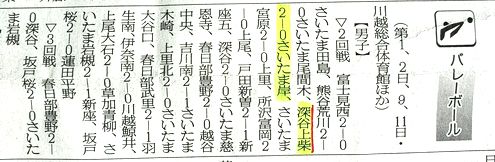 バレーボール
（第1、2日、9、11日・
川越総合体育館ほか）
【男子】
▽2回戦　富士見西2―0
さいたま田島、熊谷荒川2―
0さいたま尾間木、深谷上柴
2―0さいたま岸、さいたま
宮原2―0上里、所沢富岡2
―0上尾、戸田新曽2―1新
座五、深谷2―0さいたま慈
恩寺、春日部豊野2―0越谷
中央、吉川南2―1さいたま
木崎、上里北2―0さいたま
大谷口、春日部武里2―1羽
生南、伊奈南2―0川越鯨井、
上尾大石2―0草加青柳、さ
いたま岩槻2―1新座、坂戸
桜2―0蓮田平野
▽3回戦　春日部豊野2―
0深谷、坂戸桜2―0さいた
ま岩槻